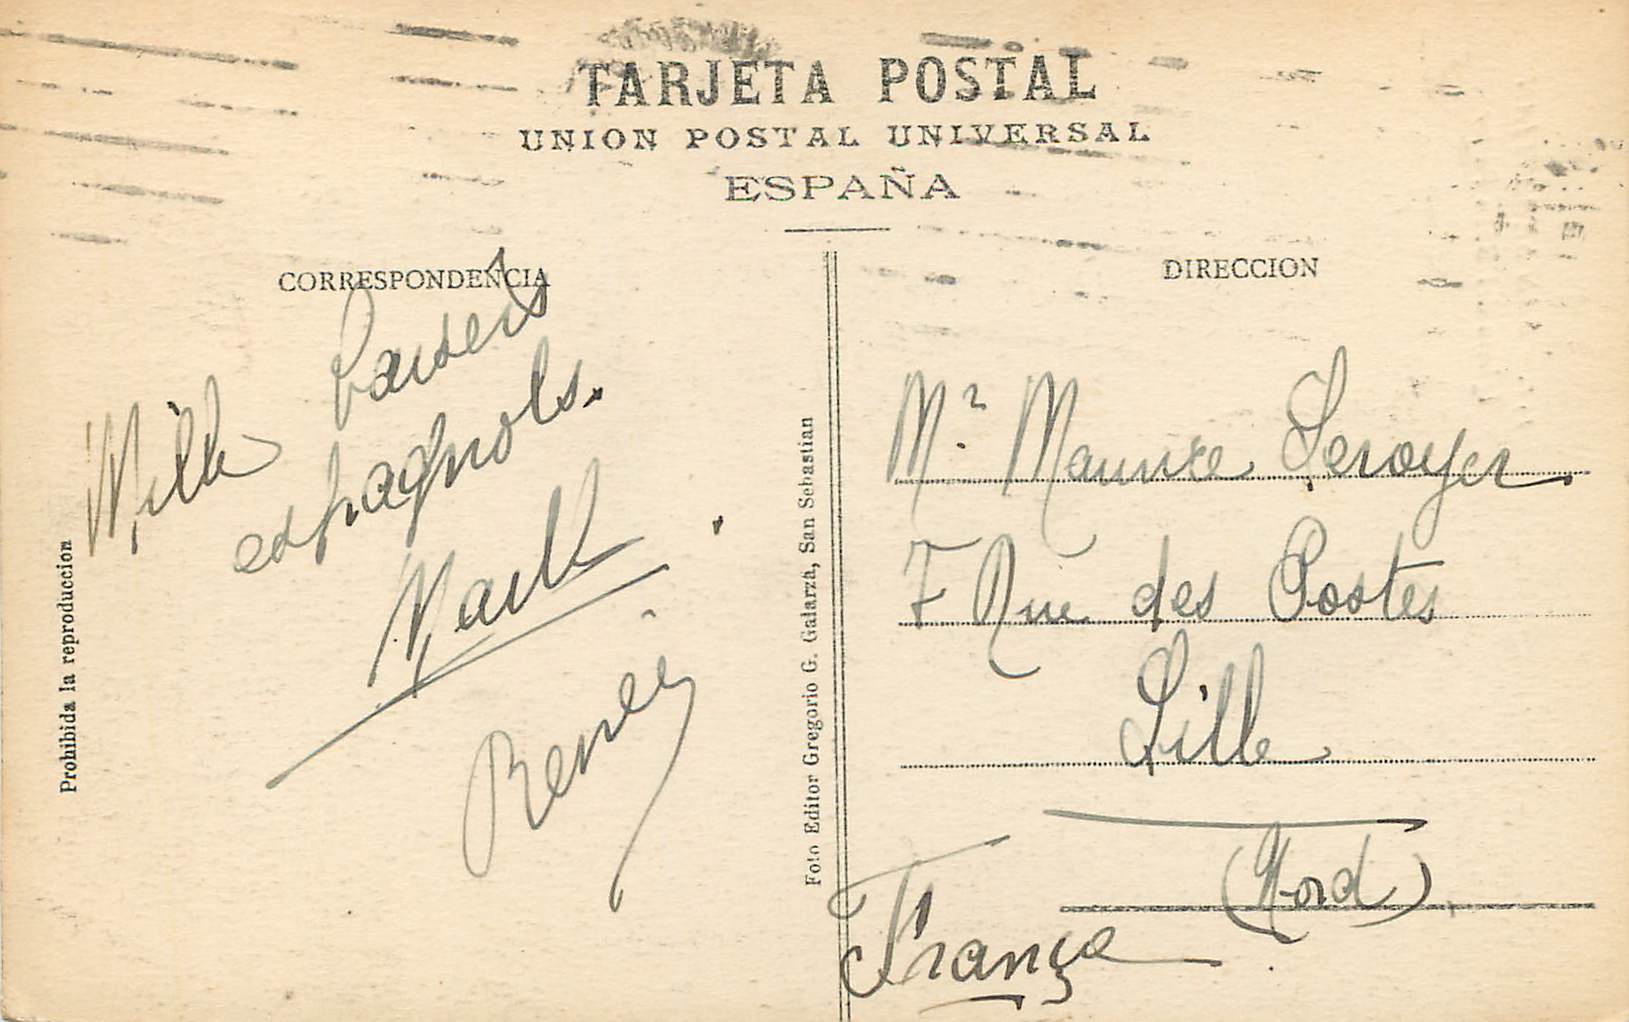 TARJETA POSTAL
UNION POSTAL UNIVERSAL
ESPAÑA
CORRESPONDENCIA
Mille baisers
espagnols.
René
Prohibida la reproduccion
Foto Editor Gregorio G. Galarza, San Sebastian
DIRECCION
Mr. Maurice Leroyer
7 Rue des Postes
Lille
(Nord)
França